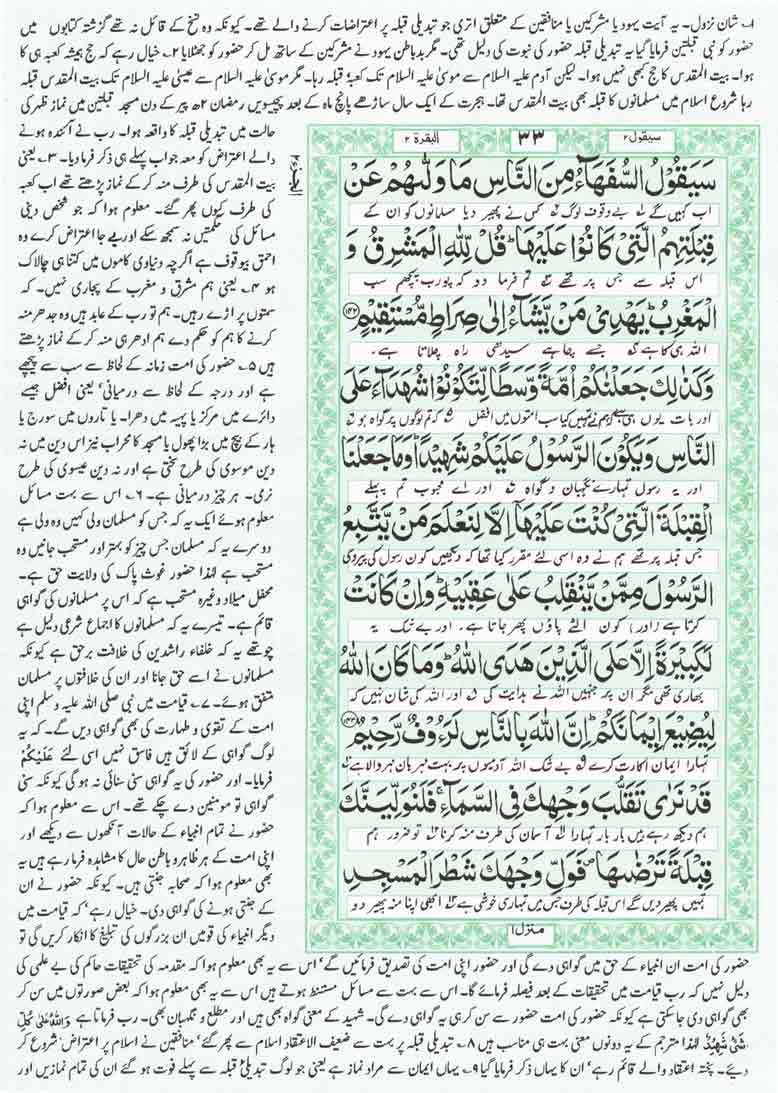 ۱۔ شان نزول۔ یہ آیت یہود یا مشرکین یا منافقین کے متعلق اتری جو تبدیلی قبلہ پر اعتراضات کرنے والے تھے۔ کیونکہ وہ نسخ کے قائل نہ تھے گزشتہ کتابوں میں
حضور کو نبی قبلتین فرمایا گیا یہ تبدیلی قبلہ حضور کی نبوت کی دلیل تھی۔ مگر بد باطن یہود نے مشرکین کے ساتھ مل کر حضور کو جھٹلایا ۲۔ خیال رہے کہ حج ہمیشہ کعبہ ہی کا
ہوا۔ بیت المقدس کا حج کبھی نہیں ہوا۔ لیکن آدم علیہ السلام سے موسیٰ علیہ السلام تک کعبہ قبلہ رہا۔ مگر موسیٰ علیہ السلام سے عیسیٰ علیہ السلام تک بیت المقدس قبلہ
رہا شروع اسلام میں مسلمانوں کا قبلہ بھی بیت المقدس تھا۔ ہجرت کے ایک سال ساڑھے پانچ ماہ کے بعد پچیسویں رمضان ۲ھ پیر کے دن مسجد قبلتین میں نماز ظہر کی
سیقول ۲
۳۳
البقرۃ ۲
سَيَقُوْلُ السُّفَهَآءُ مِنَ النَّاسِ مَا وَلّٰىهُمْ عَنْ
اب کہیں گے بے وقوف لوگ کس نے پھیر دیا مسلمانوں کو ان کے
قِبْلَتِهِمُ الَّتِيْ كَانُوْا عَلَيْهَا ؕ قُلْ لِّلّٰهِ الْمَشْرِقُ وَ
اس قبلہ سے جس پر تھے تم فرما دو کہ پورب پچھم سب
الْمَغْرِبُ ؕ يَهْدِيْ مَنْ يَّشَآءُ اِلٰى صِرَاطٍ مُّسْتَقِيْمٍ ﴿۱۴۲﴾
اللہ ہی کا ہے جسے چاہے سیدھی راہ چلاتا ہے۔
وَكَذٰلِكَ جَعَلْنٰكُمْ اُمَّةً وَّسَطًا لِّتَكُوْنُوْا شُهَدَآءَ عَلَى
اور بات یوں ہی ہے کہ ہم نے تمہیں کیا سب امتوں میں افضل کہ تم لوگوں پر گواہ ہو
النَّاسِ وَيَكُوْنَ الرَّسُوْلُ عَلَيْكُمْ شَهِيْدًا ؕ وَمَا جَعَلْنَا
اور یہ رسول تمہارے نگہبان و گواہ اور اے محبوب تم پہلے
الْقِبْلَةَ الَّتِيْ كُنْتَ عَلَيْهَآ اِلَّا لِنَعْلَمَ مَنْ يَّتَّبِعُ
جس قبلہ پر تھے ہم نے وہ اسی لئے مقرر کیا تھا کہ دیکھیں کون رسول کی پیروی
الرَّسُوْلَ مِمَّنْ يَّنْقَلِبُ عَلٰى عَقِبَيْهِ ؕ وَاِنْ كَانَتْ
کرتا ہے اور کون الٹے پاؤں پھر جاتا ہے۔ اور بے شک یہ
لَكَبِيْرَةً اِلَّا عَلَى الَّذِيْنَ هَدَى اللّٰهُ ؕ وَمَا كَانَ اللّٰهُ
بھاری تھی مگر ان پر جنہیں اللہ نے ہدایت کی اور اللہ کی شان نہیں کہ
لِيُضِيْعَ اِيْمَانَكُمْ ؕ اِنَّ اللّٰهَ بِالنَّاسِ لَرَءُوْفٌ رَّحِيْمٌ ﴿۱۴۳﴾
تمہارا ایمان اکارت کرے بے شک اللہ آدمیوں پر بہت مہربان مہر والا ہے
قَدْ نَرٰى تَقَلُّبَ وَجْهِكَ فِي السَّمَآءِ ۚ فَلَنُوَلِّيَنَّكَ
ہم دیکھ رہے ہیں بار بار تمہارا آسمان کی طرف منہ کرنا تو ضرور ہم
قِبْلَةً تَرْضٰىهَا ۪ فَوَلِّ وَجْهَكَ شَطْرَ الْمَسْجِدِ
تمہیں پھیر دیں گے اس قبلہ کی طرف جس میں تمہاری خوشی ہے ابھی اپنا منہ پھیر دو
منزل ۱
حالت میں تبدیلی قبلہ کا واقعہ ہوا۔ رب نے آئندہ ہونے
والے اعتراض کو معہ جواب پہلے ہی ذکر فرما دیا۔ ۳۔ یعنی
بیت المقدس کی طرف منہ کر کے نماز پڑھتے تھے اب کعبہ
کی طرف کیوں پھر گئے۔ معلوم ہوا کہ جو شخص دینی
مسائل کی حکمتیں نہ سمجھ سکے اور بے جا اعتراض کرے وہ
احمق بیوقوف ہے اگرچہ دنیاوی کاموں میں کتنا ہی چالاک
ہو ۴۔ یعنی ہم مشرق و مغرب کے پجاری نہیں۔ کہ
سمتوں پر اڑے رہیں۔ ہم تو رب کے عابد ہیں وہ جدھر منہ
کرنے کا ہم کو حکم دے ہم ادھر ہی منہ کر کے نماز پڑھتے
ہیں ۵۔ حضور کی امت زمانہ کے لحاظ سے سب سے پیچھے
ہے اور درجہ کے لحاظ سے درمیانی‘ یعنی افضل جیسے
دائرے میں مرکز یا پہیہ میں دھرا۔ یا تاروں میں سورج یا
ہار کے بیچ میں بڑا پھول یا مسجد کا محراب نیز اس دین میں نہ
دین موسوی کی طرح سختی ہے اور نہ دین عیسوی کی طرح
نرمی۔ ہر چیز درمیانی ہے۔ ۶۔ اس سے بہت مسائل
معلوم ہوئے ایک یہ کہ جس کو مسلمان ولی کہیں وہ ولی ہے
دوسرے یہ کہ مسلمان جس چیز کو بہتر اور مستحب جانیں وہ
مستحب ہے لہٰذا حضور غوث پاک کی ولایت حق ہے۔
محفل میلاد وغیرہ مستحب ہے کہ اس پر مسلمانوں کی گواہی
قائم ہے۔ تیسرے یہ کہ مسلمانوں کا اجماع شرعی دلیل ہے
چوتھے یہ کہ خلفاء راشدین کی خلافت برحق ہے کیونکہ
مسلمانوں نے اسے حق جانا اور ان کی خلافتوں پر مسلمان
متفق ہوئے۔ ۷۔ قیامت میں نبی صلی اللہ علیہ وسلم اپنی
امت کے تقویٰ و طہارت کی بھی گواہی دیں گے۔ کہ یہ
لوگ گواہی کے لائق ہیں فاسق نہیں اسی لئے عَلَيْكُمْ
فرمایا۔ اور حضور کی یہ گواہی سنی سنائی نہ ہو گی کیونکہ سنی
گواہی تو مومنین دے چکے تھے۔ اس سے معلوم ہوا کہ
حضور نے تمام انبیاء کے حالات آنکھوں سے دیکھے اور
اپنی امت کے ہر ظاہر و باطن حال کا مشاہدہ فرما رہے ہیں یہ
بھی معلوم ہوا کہ صحابہ جنتی ہیں۔ کیونکہ حضور نے ان
کے جنتی ہونے کی گواہی دی۔ خیال رہے‘ کہ قیامت میں
دیگر انبیاء کی قومیں ان بزرگوں کی تبلیغ کا انکار کریں گی تو
حضور کی امت ان انبیاء کے حق میں گواہی دے گی اور حضور اپنی امت کی تصدیق فرمائیں گے‘ اس سے یہ بھی معلوم ہوا کہ مقدمہ کی تحقیقات حاکم کی بے علمی کی
دلیل نہیں کہ رب قیامت میں تحقیقات کے بعد فیصلہ فرمائے گا۔ اس سے بہت سے مسائل مستنبط ہوتے ہیں اس سے یہ بھی معلوم ہوا کہ بعض صورتوں میں سن کر
بھی گواہی دی جا سکتی ہے کیونکہ حضور کی امت حضور سے سن کر ہی یہ گواہی دے گی۔ شہید کے معنی گواہ بھی ہیں اور مطلع و نگہبان بھی۔ رب فرماتا ہے وَاللّٰهُ عَلٰى كُلِّ
شَيْءٍ شَهِيْدٌ لہٰذا مترجم کے یہ دونوں معنی بہت ہی مناسب ہیں ۸۔ تبدیلی قبلہ پر بہت سے ضعیف الاعتقاد اسلام سے پھر گئے‘ منافقین نے اسلام پر اعتراض شروع کر
دیئے۔ پختہ اعتقاد والے قائم رہے‘ ان کا یہاں ذکر فرمایا گیا ۹۔ یہاں ایمان سے مراد نماز ہے یعنی جو لوگ تبدیلی قبلہ سے پہلے فوت ہو گئے ان کی تمام نمازیں اور